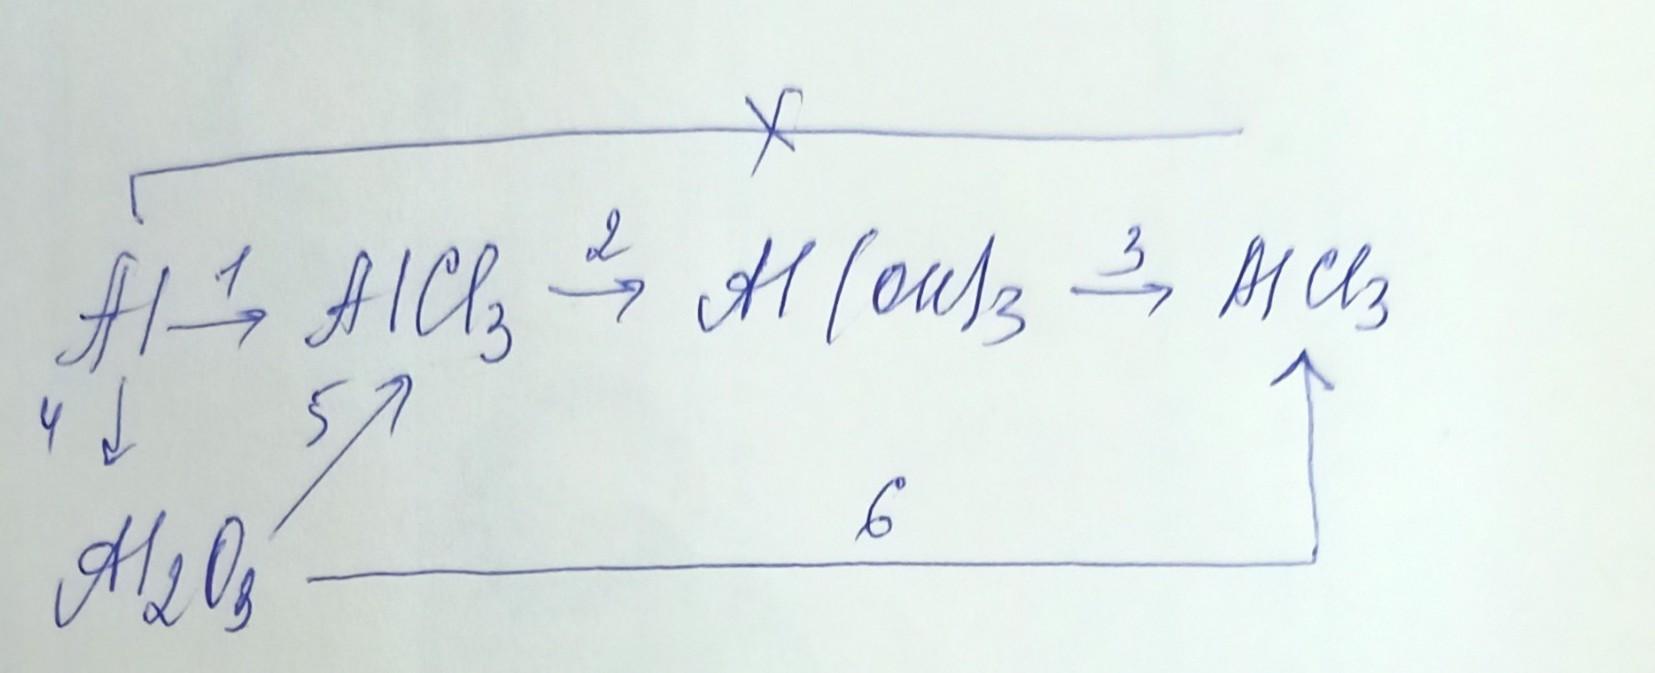 Al 1→ AlCl3 2→ Al(OH)3 3→ AlCl3
4↓ 5↗
6
Al2O3